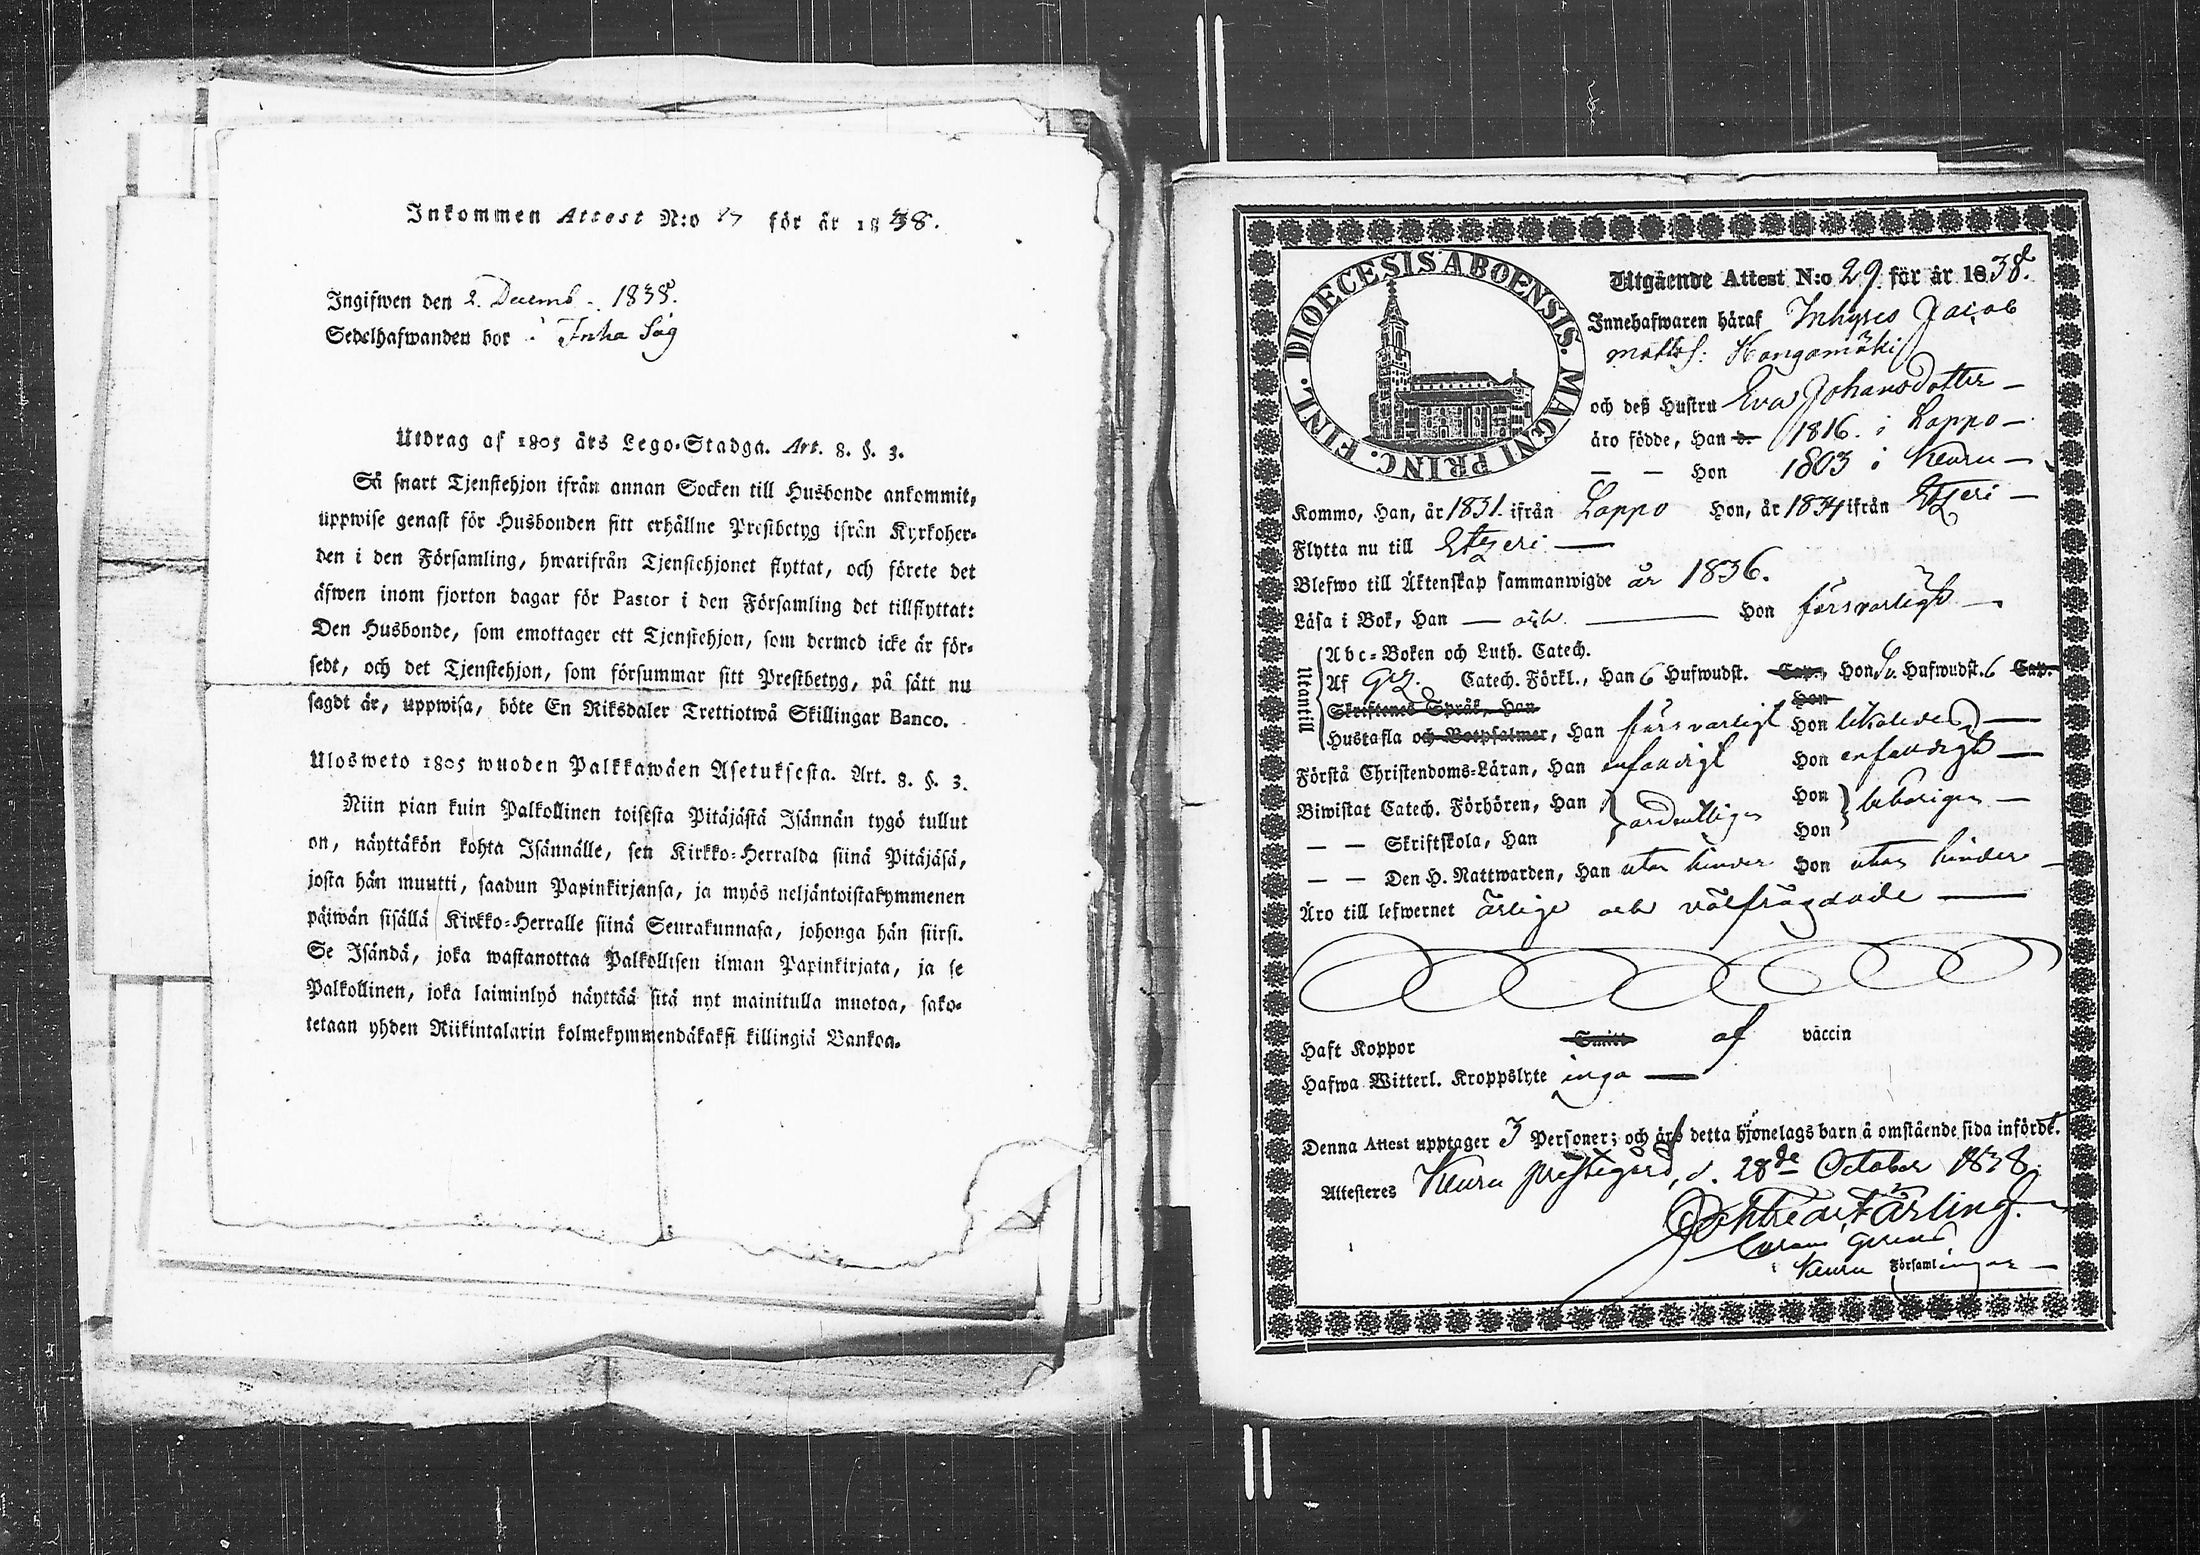 Inkommen Attest N:o 27 för år 1838.
Ingifwen den 2. Decemb. 1838.
Sedelhafwanden bor i Inha Såg
Utdrag af 1805 års Lego-Stadga. Art. 8. §. 3.
Så snart Tjenstehjon ifrån annan Socken till Husbonde ankommit,
uppwise genast för Husbonden sitt erhållne Prestbetyg ifrån Kyrkoher-
den i den Församling, hwarifrån Tjenstehjonet flyttat, och förete det
äfwen inom fjorton dagar för Pastor i den Församling det tillflyttat:
Den Husbonde, som emottager ett Tjenstehjon, som dermed icke är för-
sedt, och det Tjenstehjon, som försummar sitt Prestbetyg, på sätt nu
sagdt är, uppwisa, böte En Riksdaler Trettiotwå Skillingar Banco.
Ulosweto 1805 wuoden Palkkawäen Asetuksesta. Art. 8. §. 3.
Niin pian kuin Palkollinen toisesta Pitäjästä Isännän tygö tullut
on, näyttäkön kohta Isännälle, sen Kirkko-Herralda siinä Pitäjäsä,
josta hän muutti, saadun Papinkirjansa, ja myös neljäntoistakymmenen
päiwän sisällä Kirkko-Herralle siinä Seurakunnasa, johonga hän siirsi.
Se Isändä, joka wastanottaa Palkollisen ilman Papinkirjata, ja se
Palkollinen, joka laiminlyö näyttää sitä nyt mainitulla muotoa, sako-
tetaan yhden Riikintalarin kolmekymmendäkaksi killingiä Bankoa.
DIOECESIS ABOENSIS. MAGNI PRINC. FINL.
Utgående Attest N:o 29 för år 1838.
Innehafwaren häraf Inhyses Jacob
Mattss: Kangamäki
och deß Hustru Eva Johansdotter —
äro födde, Han d. 1816. i Lappo —
— — Hon 1803 i Keuru —
Kommo, Han, år 1831. ifrån Lappo Hon, år 1834 ifrån Etzeri —
Flytta nu till Etzeri —
Blefwo till Äktenskap sammanwigde år 1836.
Läsa i Bok, Han — och — Hon försvarligt —
Utantill
Abc-Boken och Luth. Catech.
Af Catech. Förkl., Han 6 Hufwudst. Cap., Hon Hufwudst. 6 Cap.
Skriftenes Språk, Han Hon
Hustafla och Botpsalmer, Han försvarligt Hon likaledes —
Förstå Christendoms-Läran, Han enfaldigt Hon enfaldigt —
Biwistat Catech. Förhören, Han ordentligen Hon behörigen —
— — Skriftskola, Han Hon
— — Den H. Nattwarden, Han utan hinder Hon utan hinder —
Äro till lefwernet ärlige och välfrägdade —
Haft Koppor Smitt af väccin
Hafwa Witterl. Kroppslyte inga —
Denna Attest upptager 3 Personer; och äro detta hjonelags barn å omstående sida införde.
Attesteras Keuru prestegård, d. 28de October 1838.
Färling.
Keuru Församlingar —